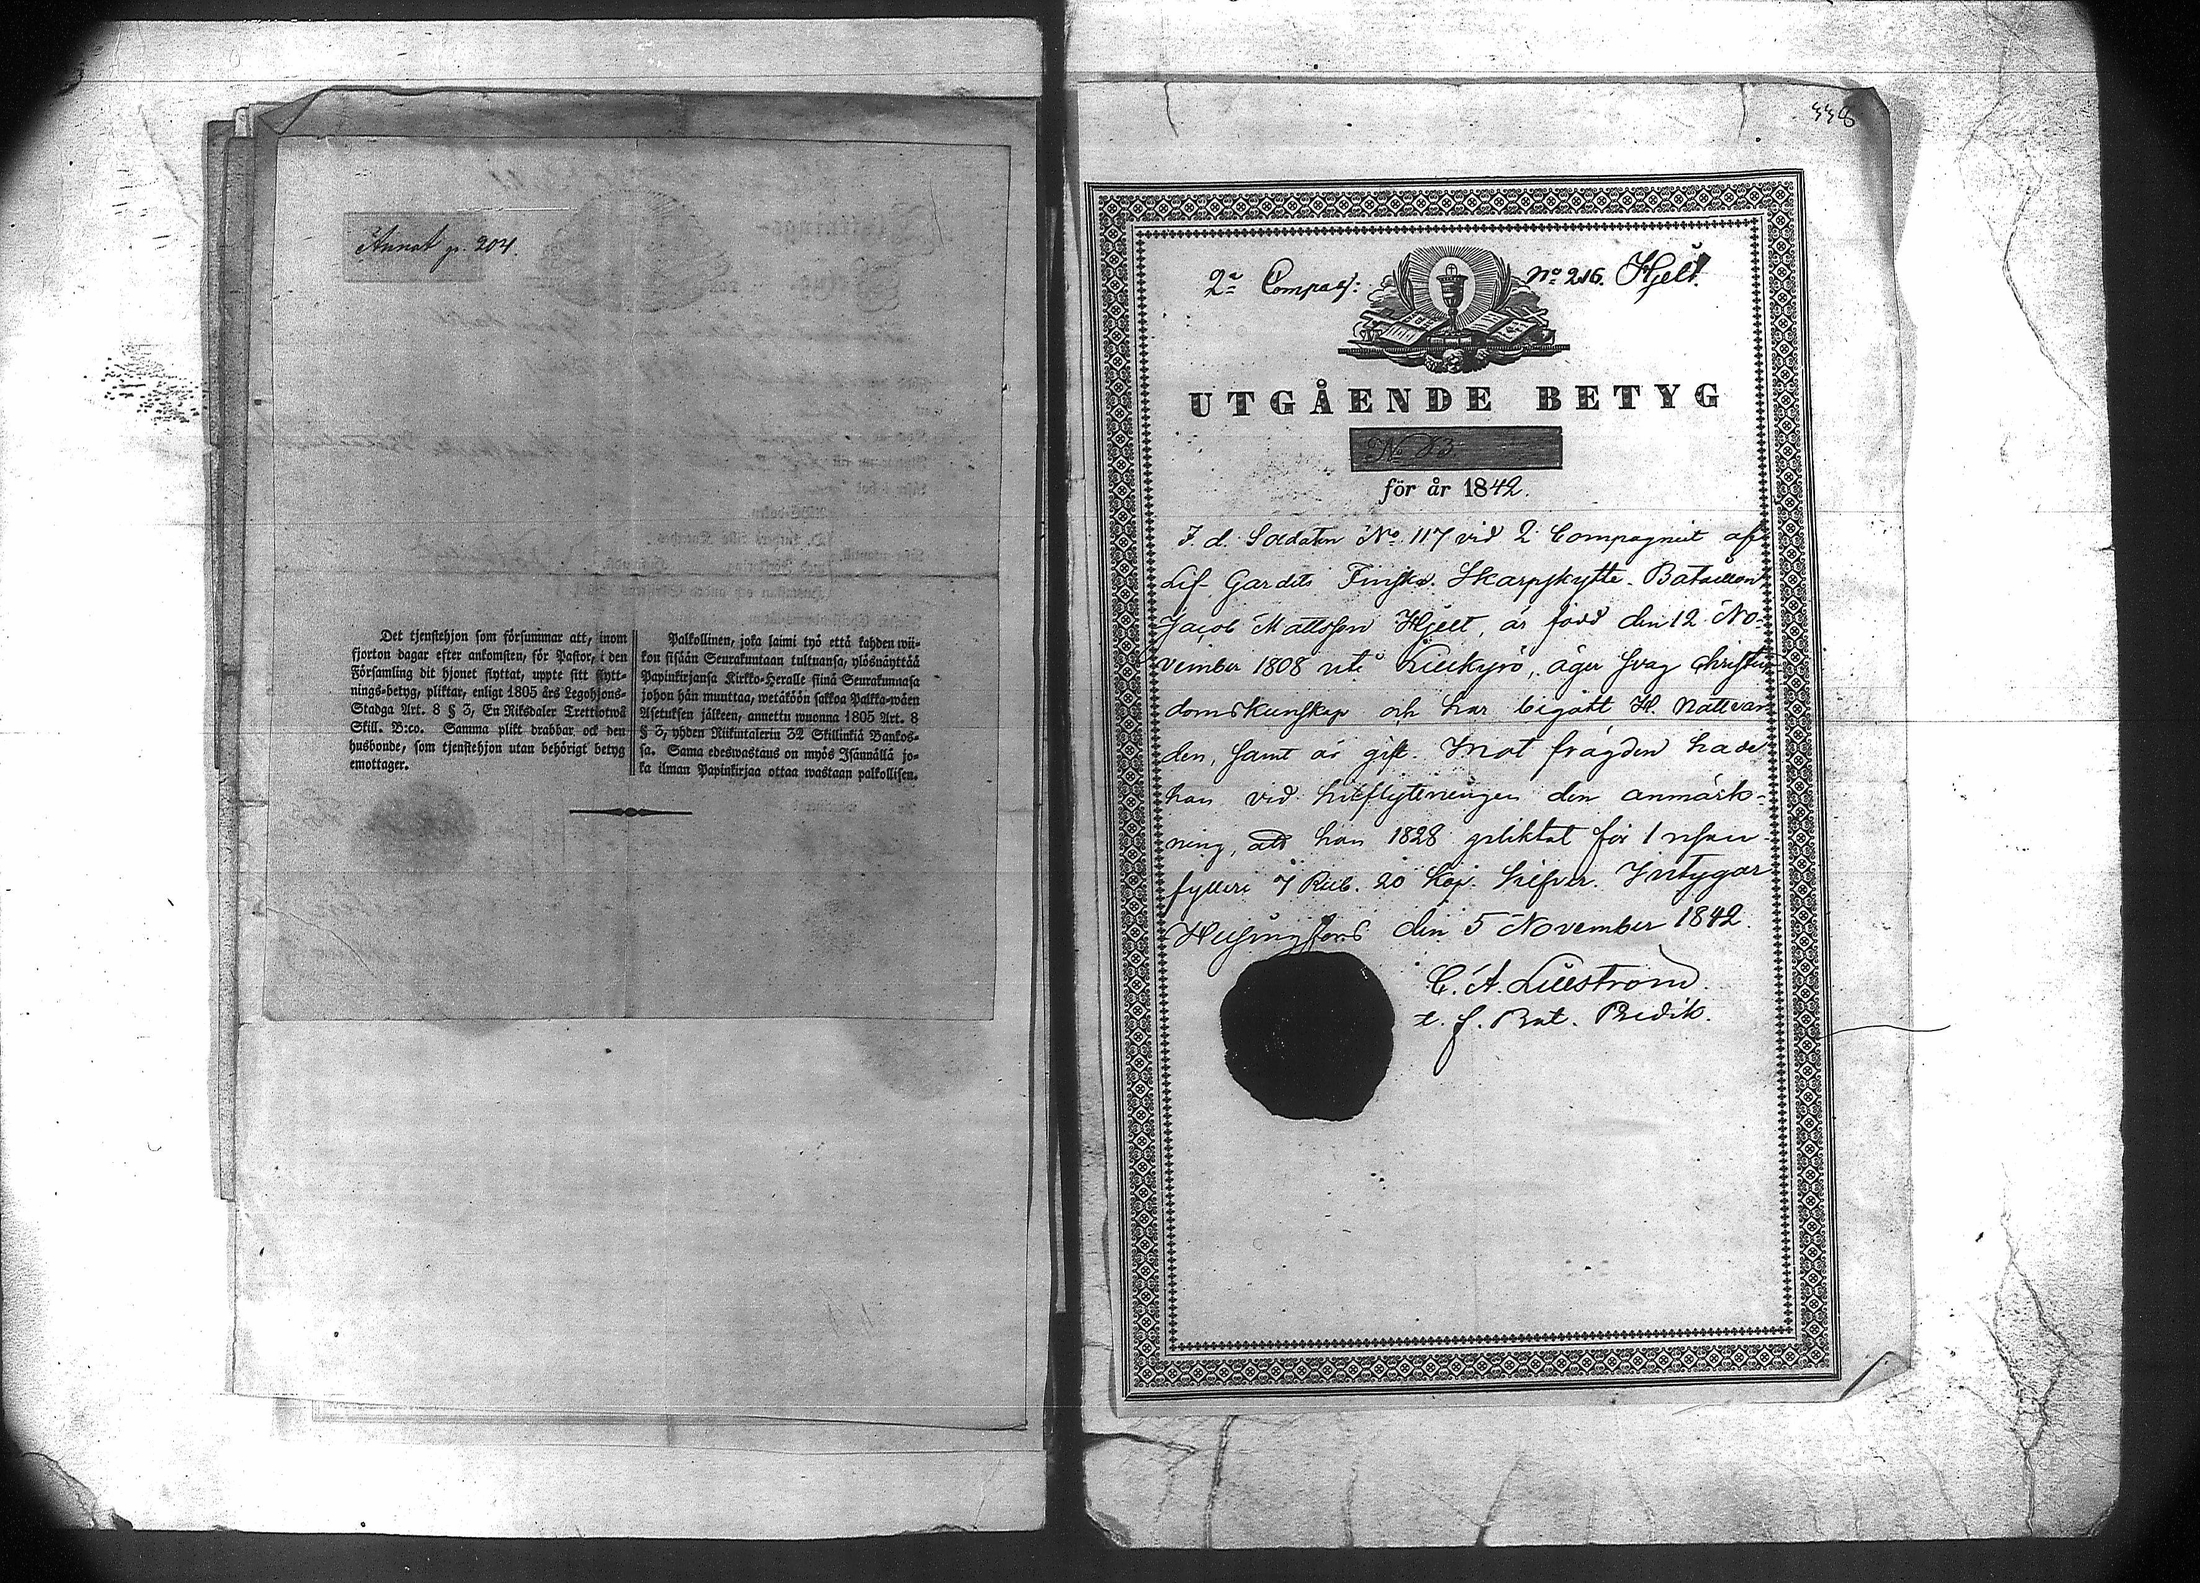 Annot p. 204.
Det tjenstehjon som försummar att, inom
fjorton dagar efter ankomsten, för Pastor, i den
Församling dit hjonet flyttat, uppte sitt flytt-
nings-betyg, pliktar, enligt 1805 års Legohjons-
Stadga Art. 8 § 3, En Riksdaler Trettiotwå
Skill. B:co. Samma plikt drabbar ock den
husbonde, som tjenstehjon utan behörigt betyg
emottager.
Palkollinen, joka laimi lyö että kahden wii-
kon sisään Seurakuntaan tultuansa, ylösnäyttää
Papinkirjansa Kirkko-Heralle siinä Seurakunnasa
johon hän muuttaa, wetäköön sakkoa Palkka-wäen
Asetuksen jälkeen, annettu wuonna 1805 Art. 8
§ 3, yhden Riikintalerin 32 Skillinkiä Bankos-
sa. Sama edeswastaus on myös Isännällä jo-
ka ilman Papinkirjaa ottaa wastaan palkollisen.
338
2a Compag: No 216. Hjelt
UTGÅENDE BETYG
No 83.
för år 1842.
F. d. Soldaten No 117 vid 2 Compagniet af
Lif-Gardets Finska Skarpskytte-Bataillon
Jacob Mattsson Hjelt, är född den 12 No-
vember 1808 uti Lillkyrö, äger svag Christen
domskunskap och har begått H. Nattvar
den, samt är gift. Mot frägden hade
han vid hitflyttningen den anmärk-
ning, att han 1828 pliktat för
fylleri 7 Rub. 20 Kop. Silfver. Intygar
Helsingfors den 5 November 1842.
C. A. Lillström
t. f. Bat. Predik.